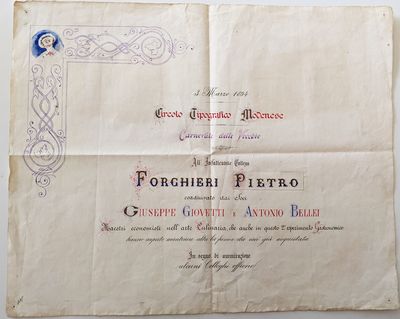 3 Marzo 1894
Circolo Tipografico Modenese
Carnevale delle
All' Infaticabile Collega
FORGHIERI PIETRO
coadiuvato dai Soci
GIUSEPPE GIOVETTI E ANTONIO BELLEI
Maestri economisti nell' arte Culinaria, che anche in questo 2º esperimento Gastronomico
hanno saputo mantenere alta la fama che si
In segno di ammirazione
alcuni Colleghi offrono